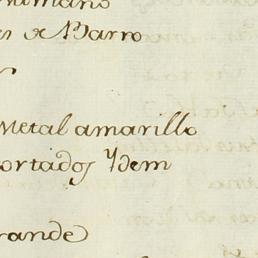 humano
es de Barro
Metal amarillo
ortados Ydem
rande